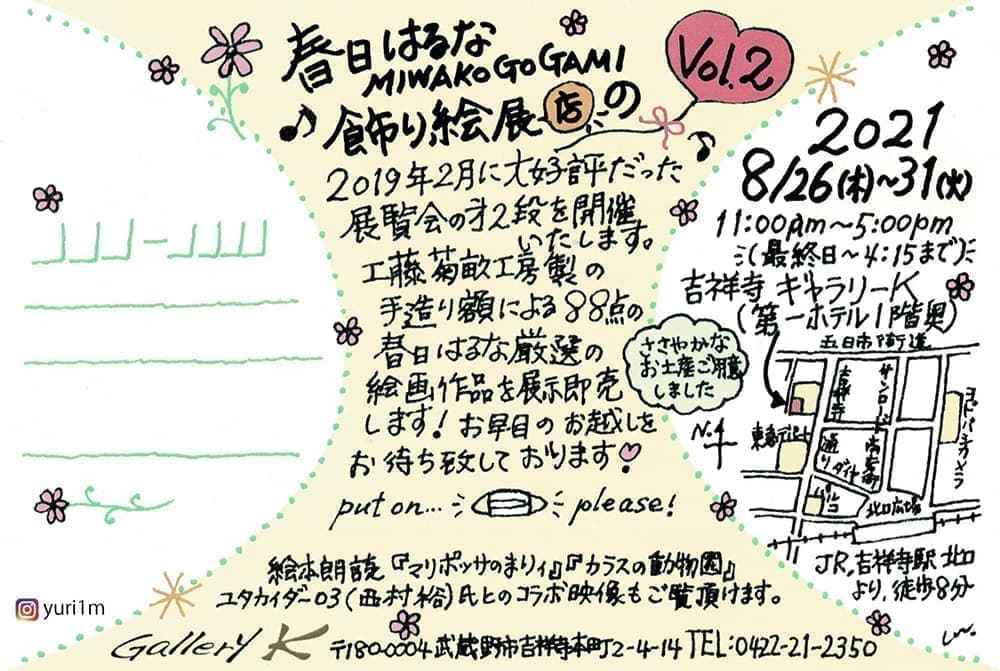 春日はるな
MIWAKO GO GAMI
飾り絵展店の
Vol.2
2019年2月に大好評だった
展覧会の才2段を開催
いたします。
工藤菊畝工房製の
手造り額による88点の
春日はるな厳選の
絵画作品を展示即売
します！お早目のお越しを
お待ち致しております♡
put on... please!
2021
8/26(木)〜31(火)
11:00am〜5:00pm
(最終日〜4:15まで)
吉祥寺 ギャラリーK
(第一ホテル1階奥)
ささやかな
お土産ご用意
しました
五日市街道
吉祥寺通り
サンロード商店街
ヨドバシカメラ
東急デパート
ダイヤ
パルコ
北口広場
N.4
JR,吉祥寺駅 北口
より,徒歩8分
絵本朗読『マリポッサのまりィ』『カラスの動物園』
ユタカイダー03(西村裕)氏とのコラボ映像もご覧頂けます。
yuri1m
Gallery K 〒180-0004 武蔵野市吉祥寺本町2-4-14 TEL:0422-21-2350